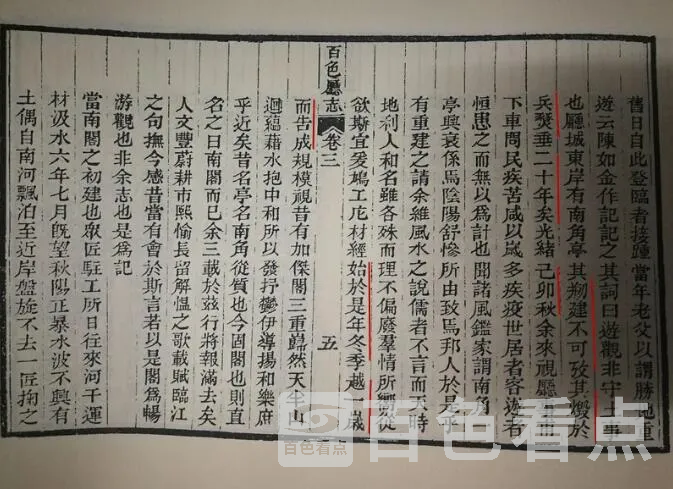 舊日自此登臨者接踵當年老父以謂勝地重
遊云陳如金作記記之其詞曰遊觀非守土事
也廳城東岸有南角亭其剏建不可攷其燬於
兵燹垂二十年矣光緒己卯秋余來視廳事甫
下車問民疾苦咸以歲多疾疫世居者客遊者
恒患之而無以為計也聞諸風鑑家謂南角
亭興衰係焉陰陽舒慘所由致焉邦人於是乎
有重建之請余維風水之說儒者不言而天時
地利人和名雖各殊而理不偏廢羣情所鄉從
欲斯宜爰鳩工庀材經始於是年冬季越一歲
而告成規模視昔有加傑閣三重巋然天半山
迴蘊藉水抱中和所以發抒鬱伊導揚和樂庶
乎近矣昔名亭名南角從質也今固閣也則直
名之曰南閣而已余三載於茲行將報滿去矣
人文豐蔚耕市熙愉長留解慍之歌載賦臨江
之句撫今感昔當有會於斯言若以是閣為暢
游觀也非余志也是為記
當南閣之初建也眾匠駐工所日往來河干運
材汲水六年七月既望秋陽正暴水波不興有
土偶自南河飄泊至近岸盤旋不去一匠掬之
百色廳志
卷三
五
百色看点
百色看点